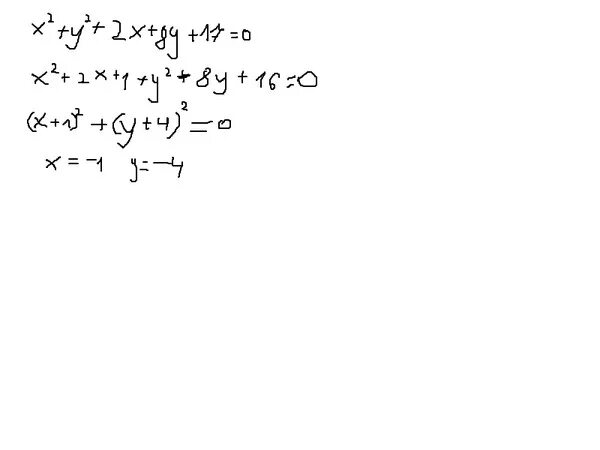 x² + y² + 2x + 8y + 17 = 0
x² + 2x + 1 + y² + 8y + 16 = 0
(x + 1)² + (y + 4)² = 0
x = -1 y = -4